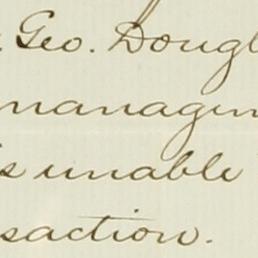 Geo. Dougl
managem
is unable
saction.